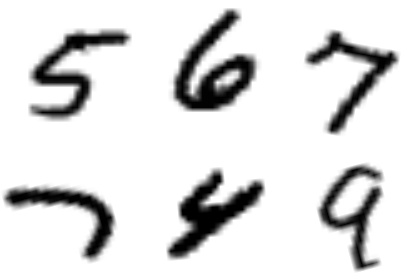 5 6 7
7 4 9